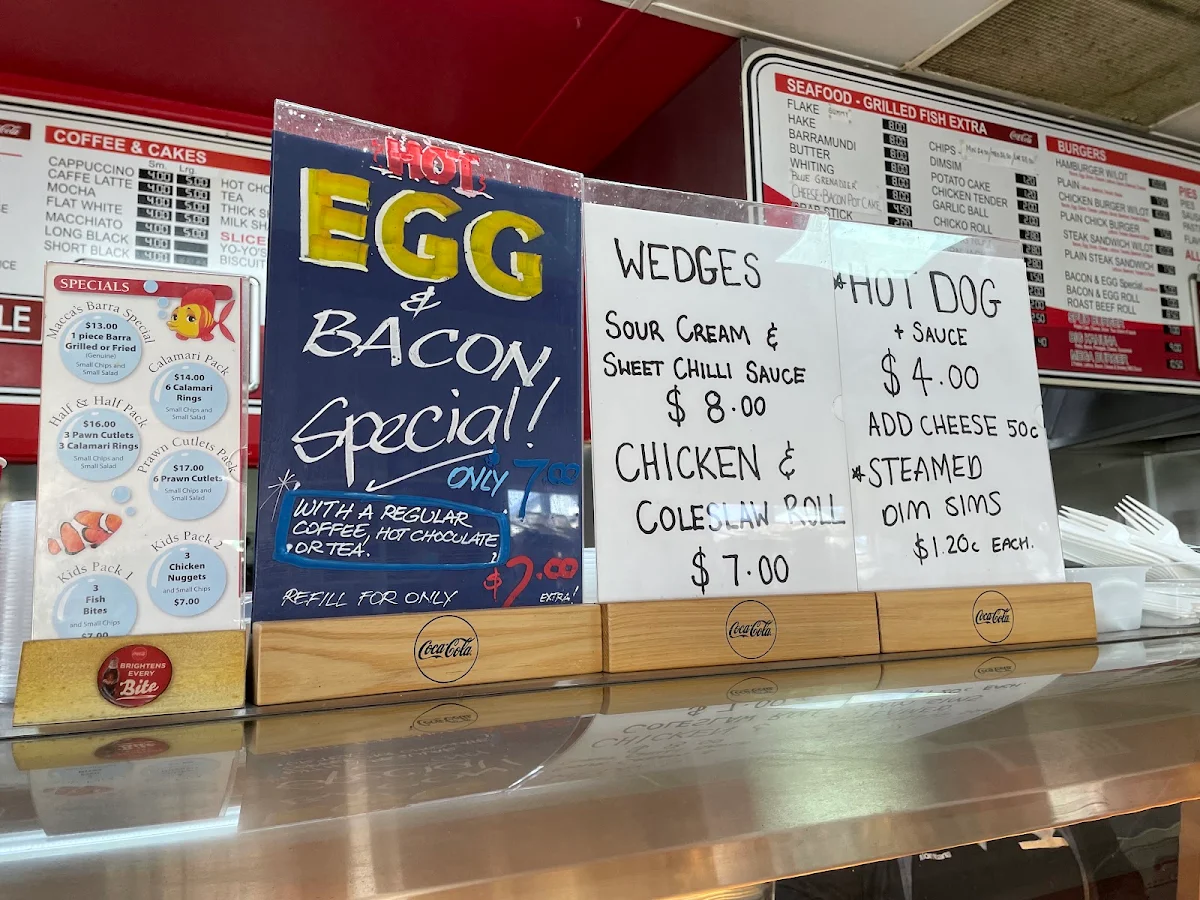 COFFEE & CAKES
Sm. Lrg.
CAPPUCCINO 4.00 5.00
CAFFE LATTE 4.00 5.00
MOCHA 4.00 5.00
FLAT WHITE 4.00 5.00
MACCHIATO 4.00 5.00
LONG BLACK 4.00
SHORT BLACK 4.00
HOT CHO
TEA
THICK S
MILK SH
SLICE
YO-YO'S
BISCUIT
SPECIALS
Macca's Barra Special
$13.00
1 piece Barra
Grilled or Fried
(Genuine)
Small Chips and
Small Salad
Calamari Pack
$14.00
6 Calamari
Rings
Small Chips and
Small Salad
Half & Half Pack
$16.00
3 Pawn Cutlets
3 Calamari Rings
Small Chips and
Small Salad
Prawn Cutlets Pack
$17.00
6 Prawn Cutlets
Small Chips and
Small Salad
Kids Pack 2
3
Chicken
Nuggets
and Small Chips
$7.00
Kids Pack 1
3
Fish
Bites
and Small Chips
$7.00
BRIGHTENS
EVERY
Bite
HOT
EGG
&
BACON
Special!
ONLY 7.00
WITH A REGULAR
COFFEE, HOT CHOCOLATE
OR TEA.
REFILL FOR ONLY
$2.00
EXTRA!
Coca-Cola
WEDGES
SOUR CREAM &
SWEET CHILLI SAUCE
$8.00
CHICKEN &
COLESLAW ROLL
$7.00
Coca-Cola
*HOT DOG
+ SAUCE
$4.00
ADD CHEESE 50c
*STEAMED
DIM SIMS
$1.20c EACH.
Coca-Cola
SEAFOOD - GRILLED FISH EXTRA
Coca-Cola
FLAKE
HAKE
BARRAMUNDI
BUTTER
WHITING
BLUE GRENADIER
CHEESE+BACON POT CAKE
CHIPS
DIMSIM
POTATO CAKE
CHICKEN TENDER
GARLIC BALL
CHICKO ROLL
BURGERS
HAMBURGER W/LOT
PLAIN
CHICKEN BURGER W/LOT
PLAIN CHICK BURGER
STEAK SANDWICH W/LOT
PLAIN STEAK SANDWICH
BACON & EGG Special
BACON & EGG ROLL
ROAST BEEF ROLL
MEGA BURGER